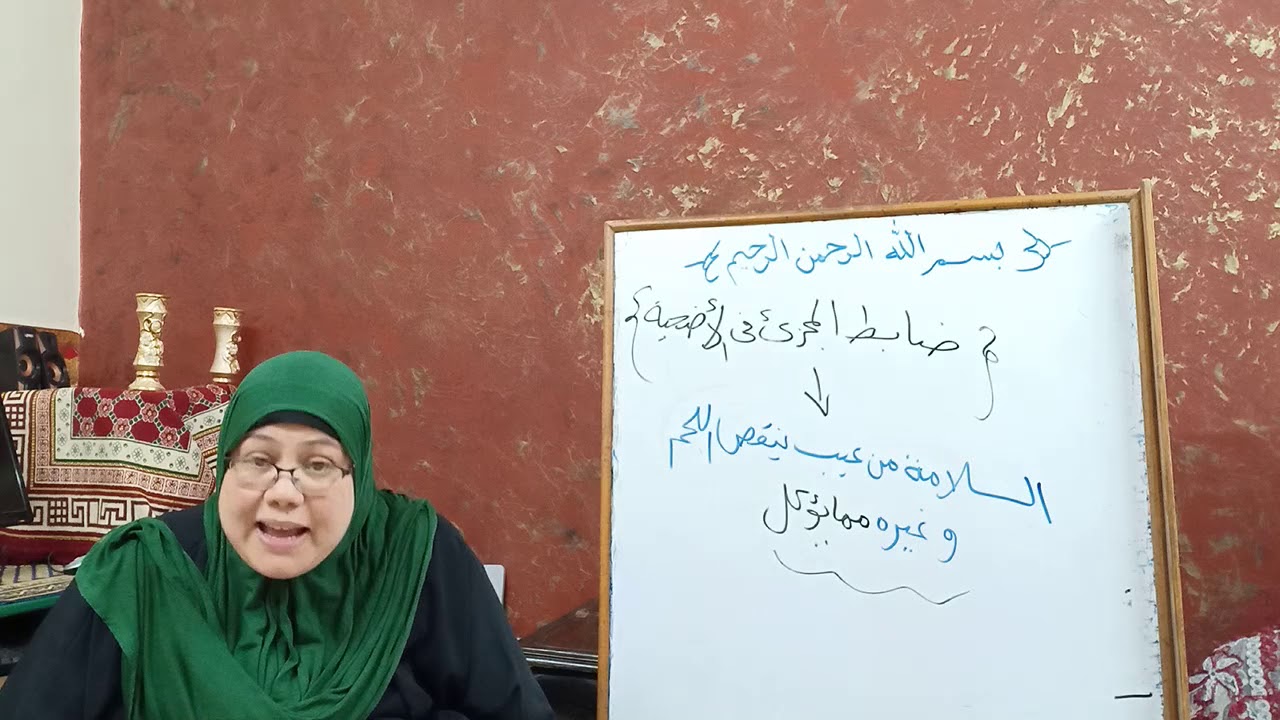 بسم الله الرحمن الرحيم
{ ضابط المجزئ فى الأضحية }
السلامة من عيب ينقص اللحم
و غيره مما يؤكل